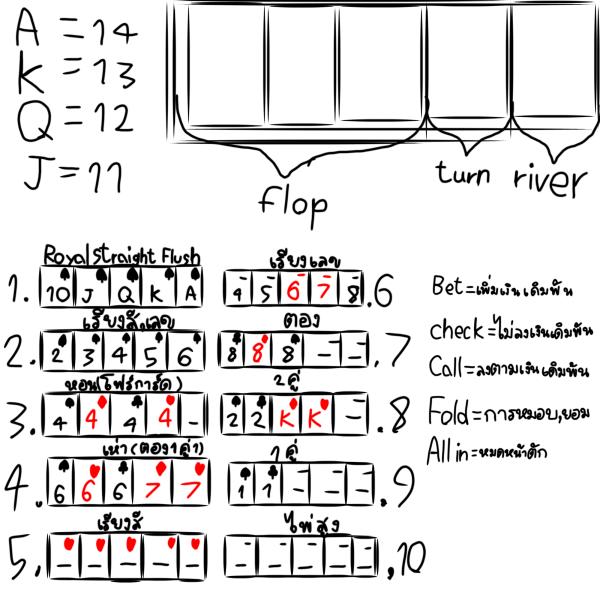 A = 14
K = 13
Q = 12
J = 11
flop
turn
river
Royal Straight Flush
1. 10 J Q K A
เรียงสี,เลข
2. 2 3 4 5 6
หอน(โฟร์การ์ด)
3. 4 4 4 4 -
เห่า(ตอง1คู่1)
4. 6 6 6 7 7
เรียงสี
5. - - - - -
เรียงเลข
4 5 6 7 8 .6
ตอง
8 8 8 - - .7
2คู่
2 2 K K - .8
1คู่
1 1 - - - .9
ไพ่สูง
- - - - - .10
Bet=เพิ่มเงินเดิมพัน
check=ไม่ลงเงินเดิมพัน
Call=ลงตามเงินเดิมพัน
Fold=การหมอบ,ยอม
All in=หมดหน้าตัก